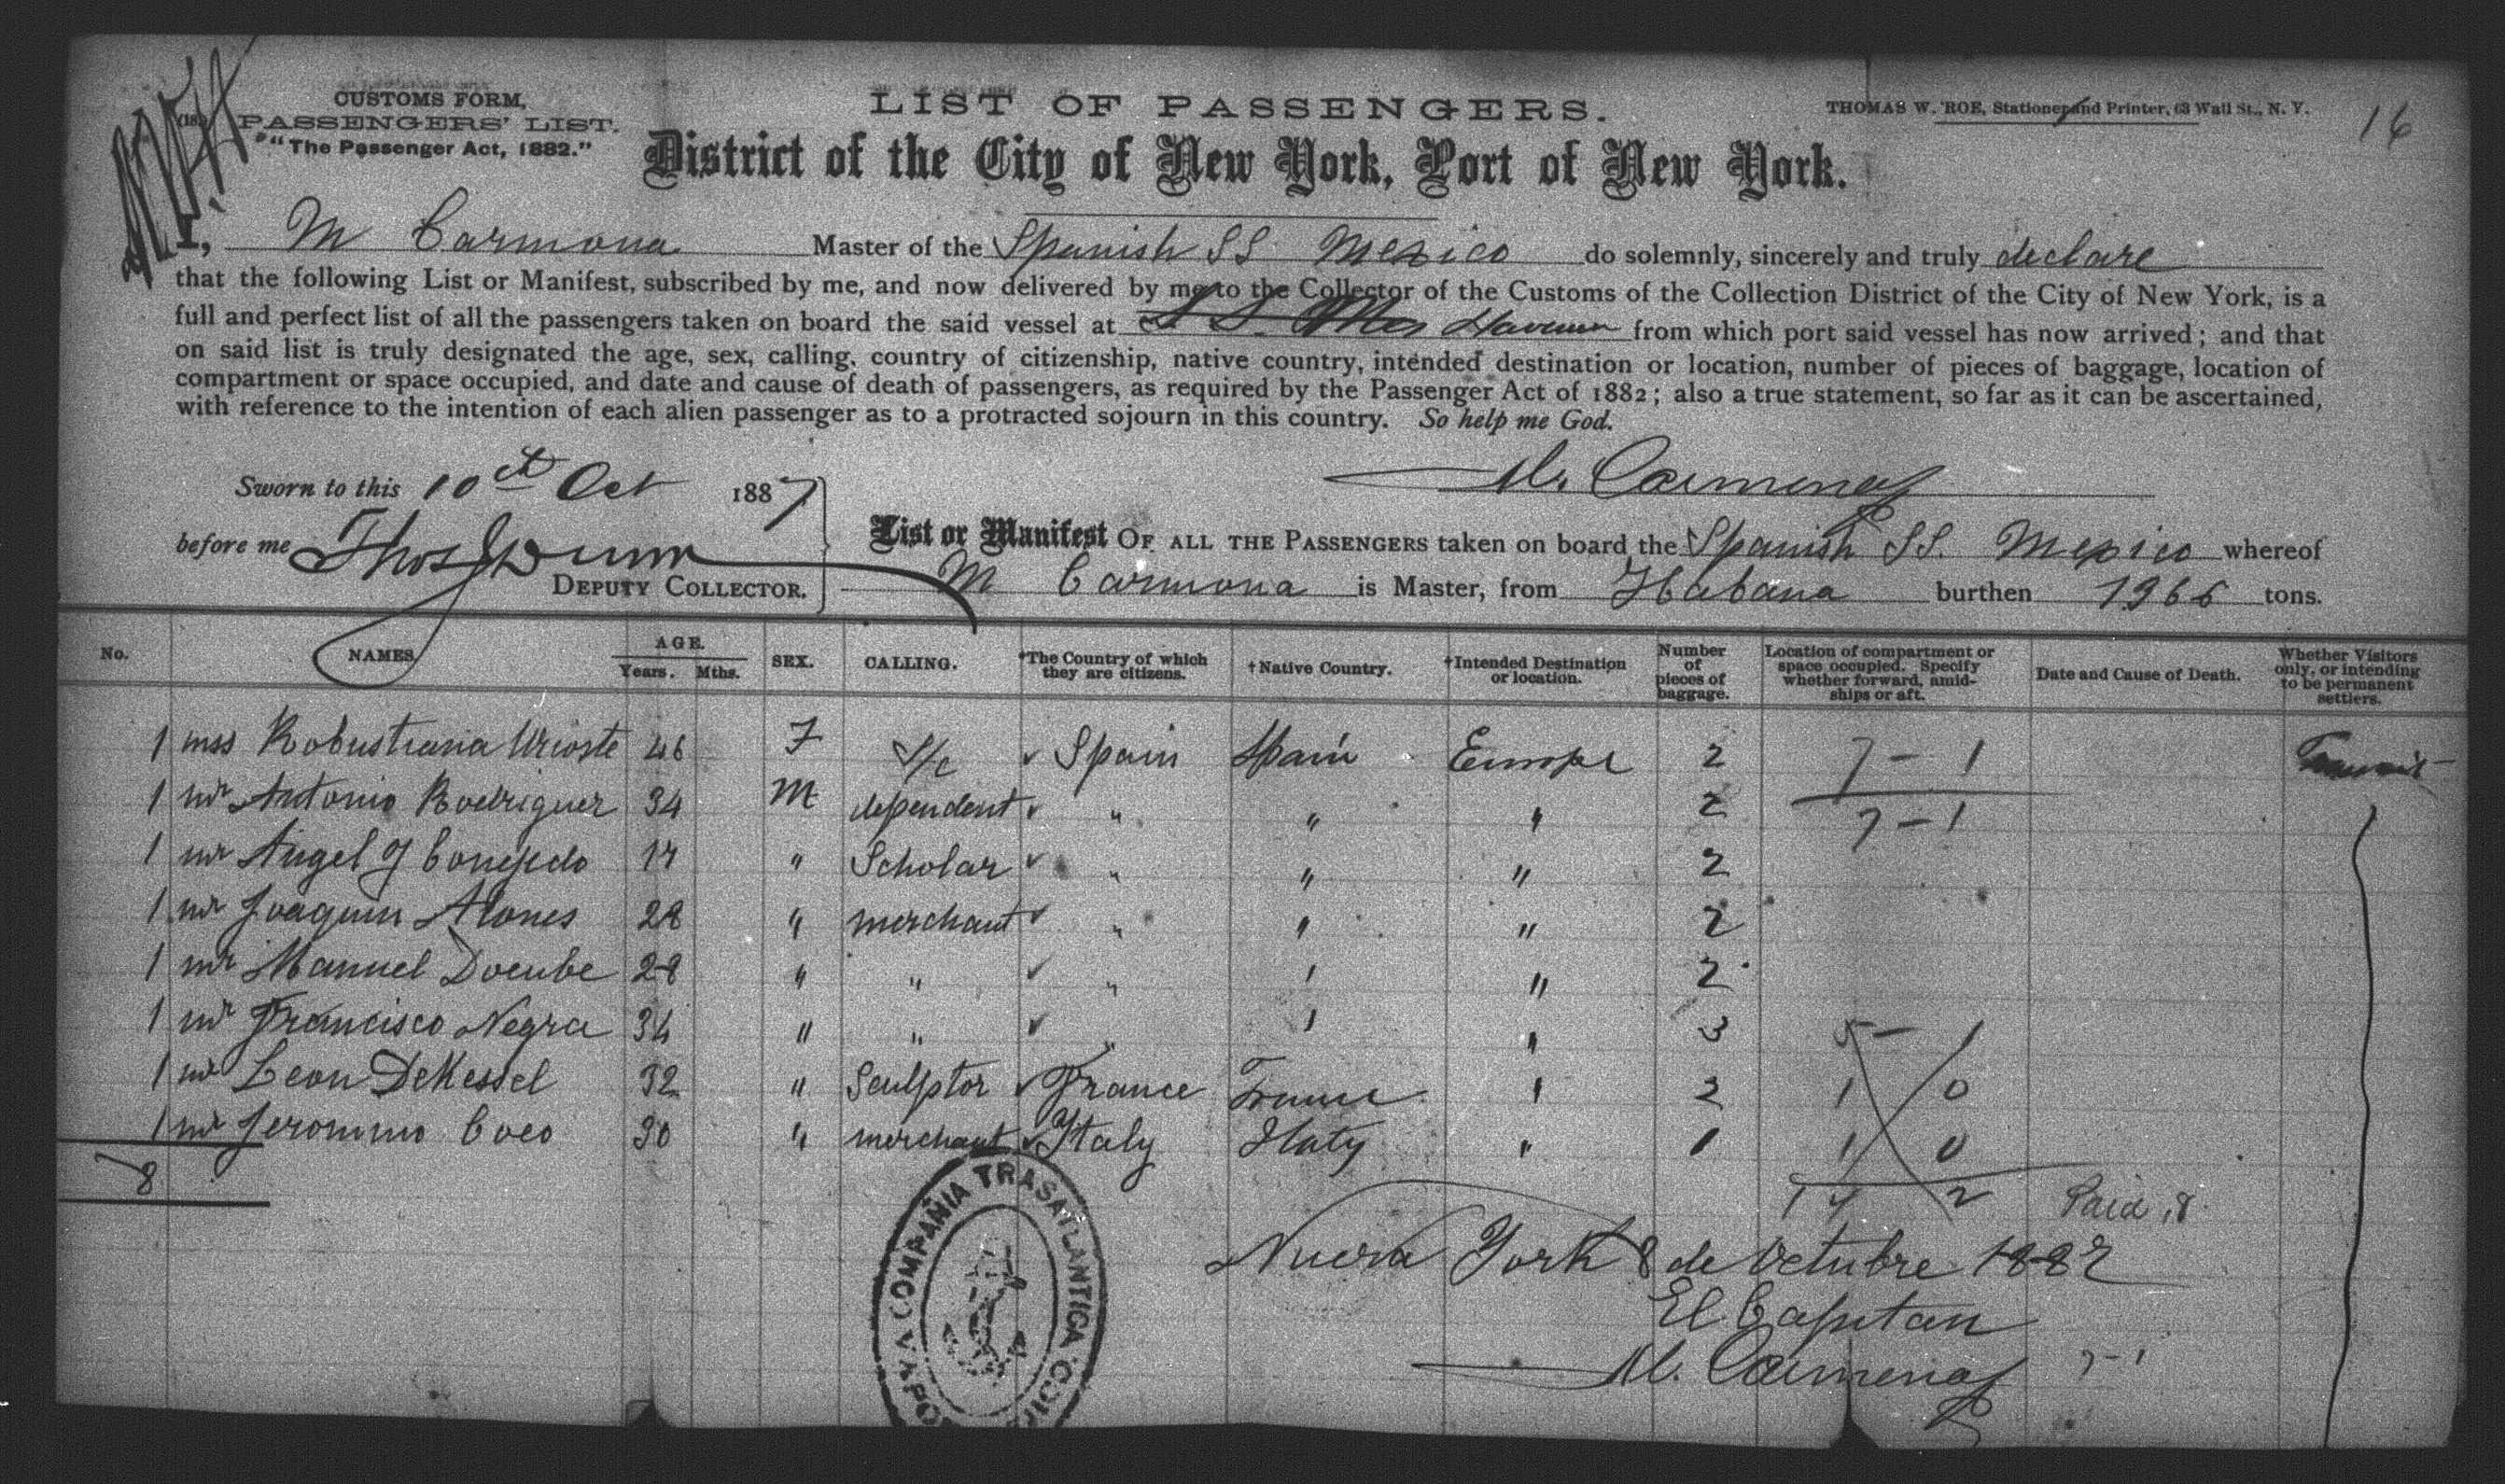 CUSTOMS FORM,
PASSENGERS' LIST.
"The Passenger Act, 1882."
LIST OF PASSENGERS.
THOMAS W. ROE, Stationer and Printer, 63 Wall St., N. Y.
16
District of the City of New York, Port of New York.
I, M Carmona Master of the Spanish SS Mexico do solemnly, sincerely and truly declare
that the following List or Manifest, subscribed by me, and now delivered by me to the Collector of the Customs of the Collection District of the City of New York, is a
full and perfect list of all the passengers taken on board the said vessel at Havana from which port said vessel has now arrived; and that
on said list is truly designated the age, sex, calling, country of citizenship, native country, intended destination or location, number of pieces of baggage, location of
compartment or space occupied, and date and cause of death of passengers, as required by the Passenger Act of 1882; also a true statement, so far as it can be ascertained,
with reference to the intention of each alien passenger as to a protracted sojourn in this country. So help me God.
M. Carmona
Sworn to this 10th Oct 1887
before me Thos Dunn
DEPUTY COLLECTOR.
List or Manifest OF ALL THE PASSENGERS taken on board the Spanish SS. Mexico whereof
M Carmona is Master, from Habana burthen 1366 tons.
No. NAMES AGE. Years. Mths. SEX. CALLING. †The Country of which they are citizens. †Native Country. †Intended Destination or location. Number of pieces of baggage. Location of compartment or space occupied. Specify whether forward, amidships or aft. Date and Cause of Death. Whether Visitors only, or intending to be permanent settlers.
1 mss Robustiana Urioste 46 F S/c Spain Spain Europe 2 7 - 1 Transit
1 mr Antonio Rodriguez 34 M dependent " " " 2 7 - 1
1 mr Angel J Conejedo 17 " Scholar " " " 2
1 mr Joaquin Alones 28 " merchant " " " 2
1 mr Manuel Docube 28 " " " " " 2
1 mr Francisco Negra 34 " " " " " 3 5 - 1
1 mr Leon DeKessel 32 " Sculptor France France " 2 1 0
1 mr Jeronimo Coco 30 " merchant Italy Italy " 1 1 0
8
2 Paid 8
COMPAÑIA TRASATLANTICA
Nueva York 8 de Octubre 1887
El Capitan
M. Carmona
7-1